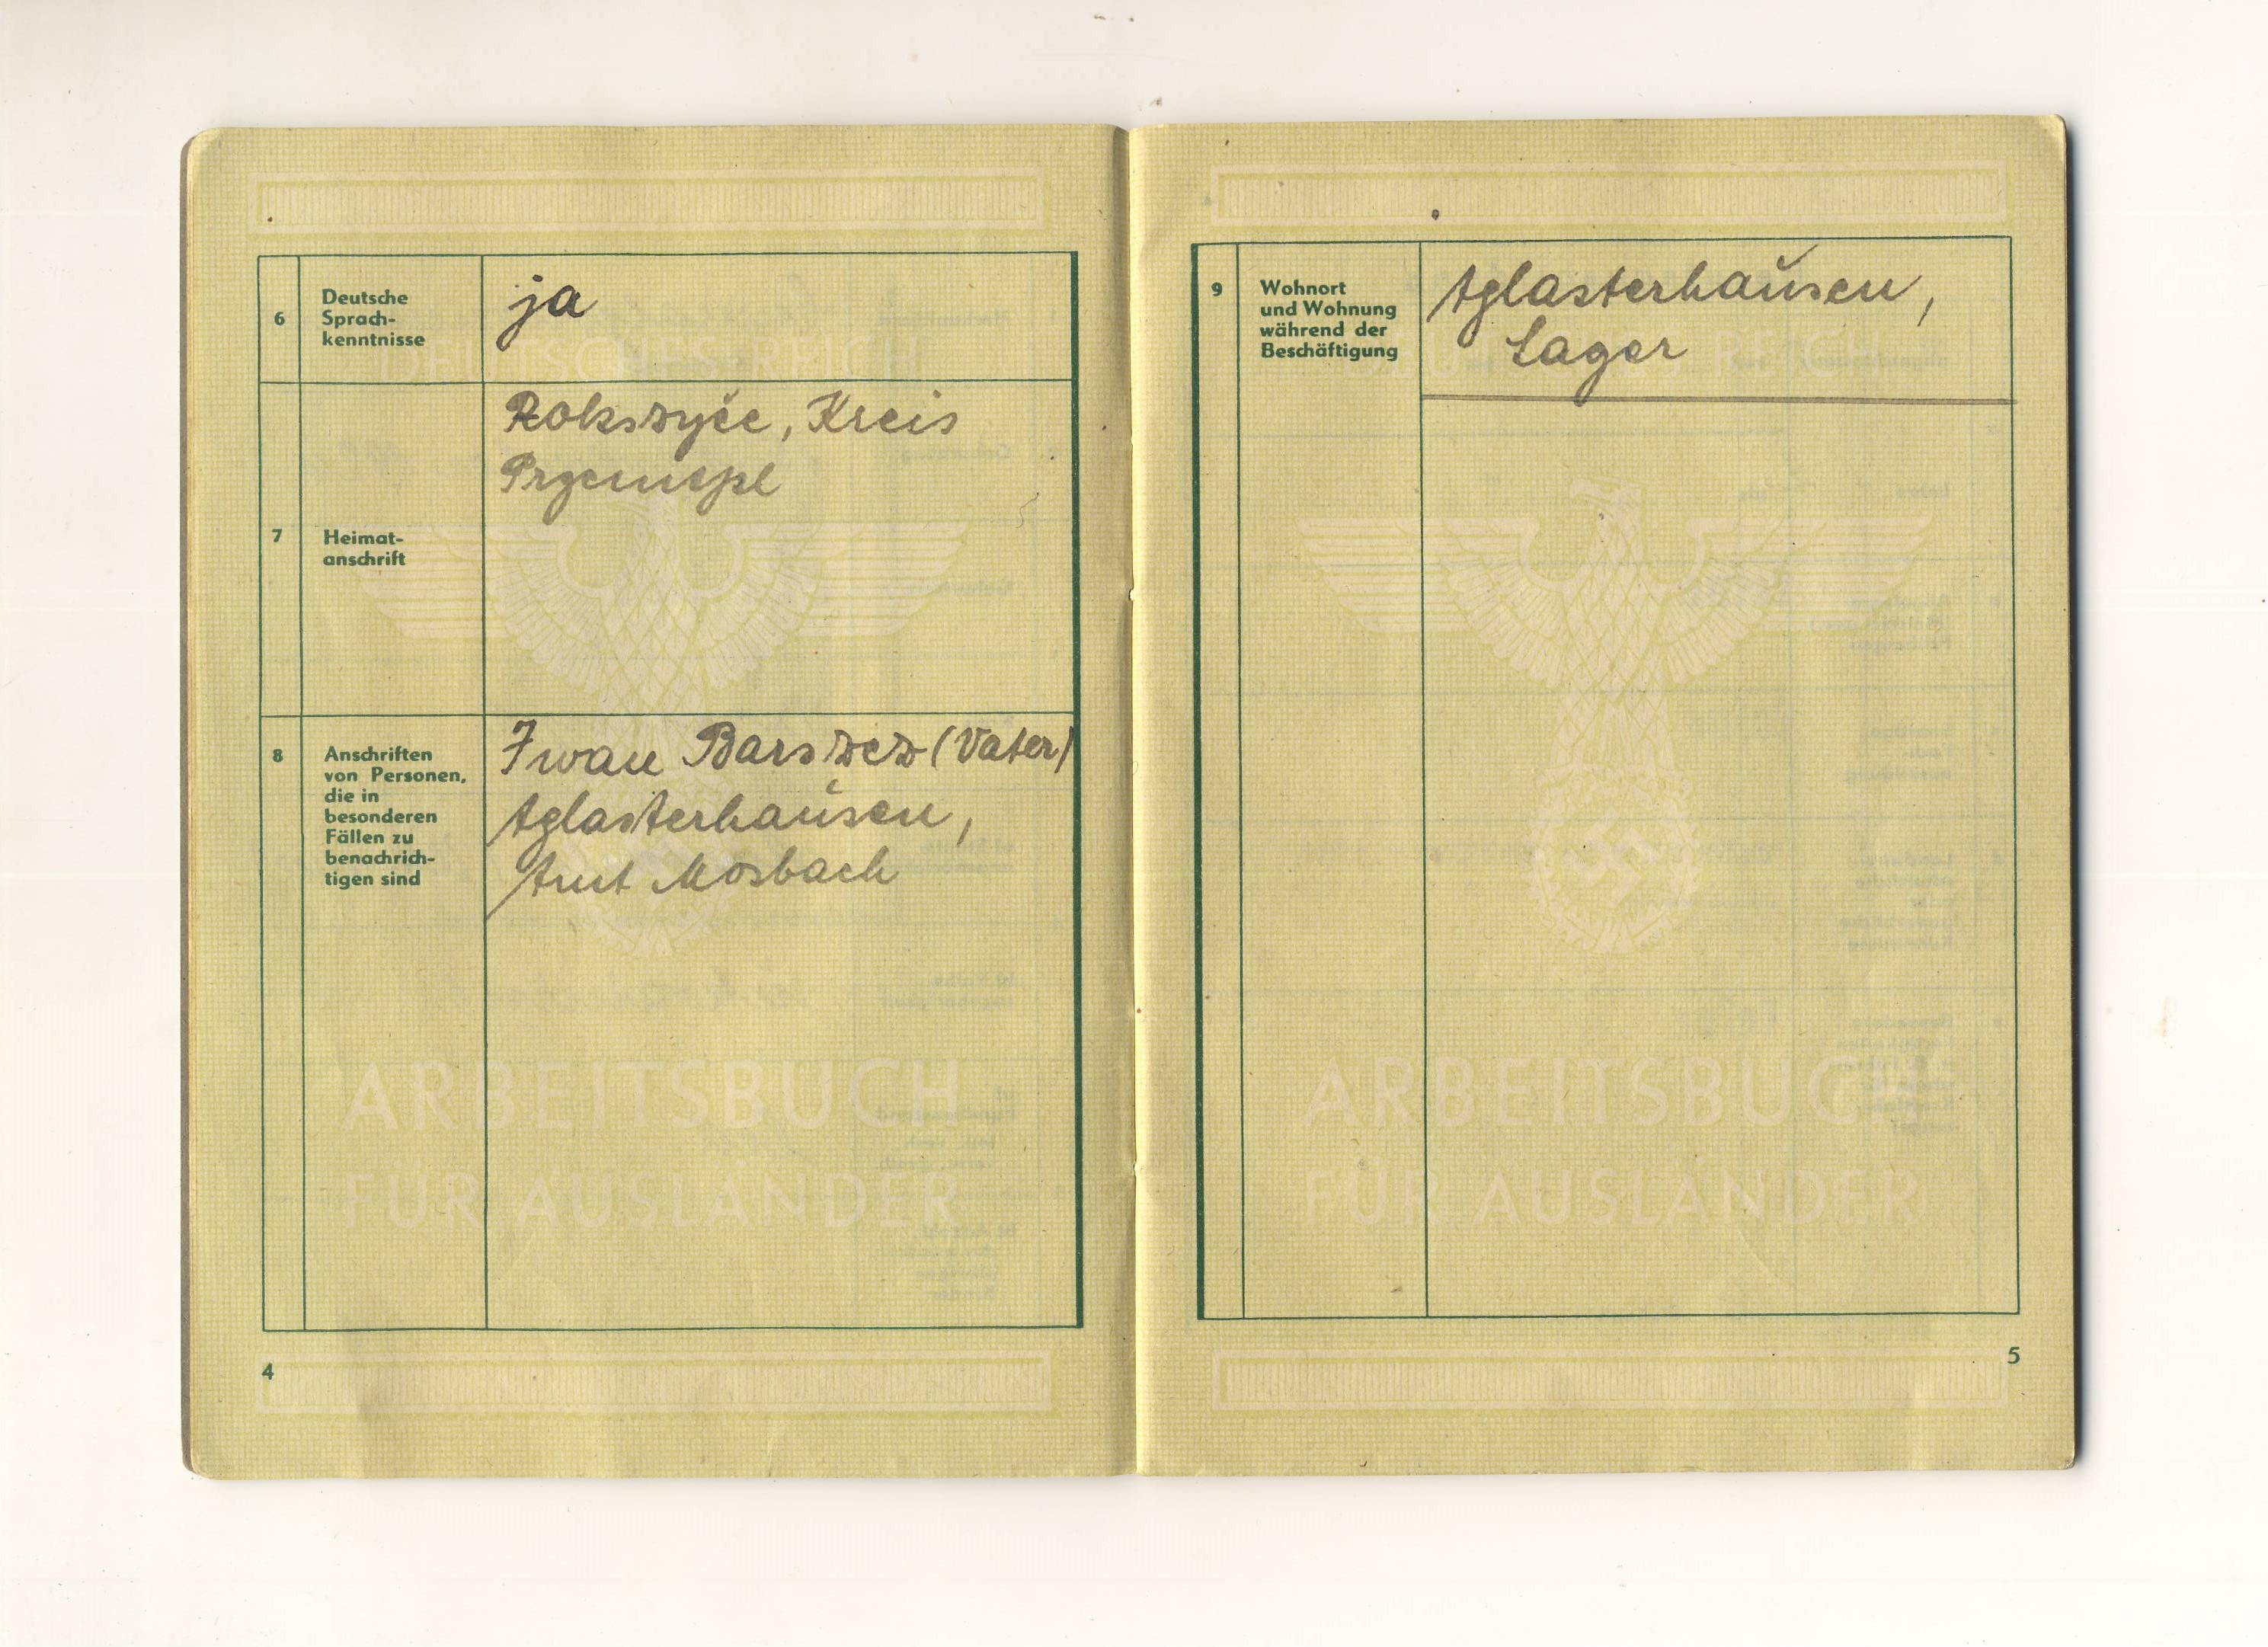 6
Deutsche
Sprach-
kenntnisse
ja
7
Heimat-
anschrift
Rokszyće, Kreis
Przemysl
8
Anschriften
von Personen,
die in
besonderen
Fällen zu
benachrich-
tigen sind
Iwan Barszcz (Vater)
Aglasterhausen,
Amt Mosbach
DEUTSCHES REICH
ARBEITSBUCH
FÜR AUSLÄNDER
4
9
Wohnort
und Wohnung
während der
Beschäftigung
Aglasterhausen,
Lager
DEUTSCHES REICH
ARBEITSBUCH
FÜR AUSLÄNDER
5